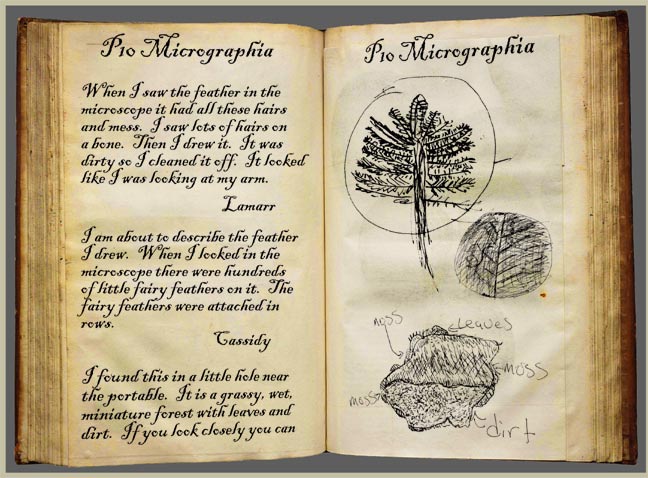 P10 Micrographia
When I saw the feather in the
microscope it had all these hairs
and mess. I saw lots of hairs on
a bone. Then I drew it. It was
dirty so I cleaned it off. It looked
like I was looking at my arm.
Lamarr
I am about to describe the feather
I drew. When I looked in the
microscope there were hundreds
of little fairy feathers on it. The
fairy feathers were attached in
rows.
Cassidy
I found this in a little hole near
the portable. It is a grassy, wet,
miniature forest with leaves and
dirt. If you look closely you can
P10 Micrographia
moss
leaves
moss
moss
dirt